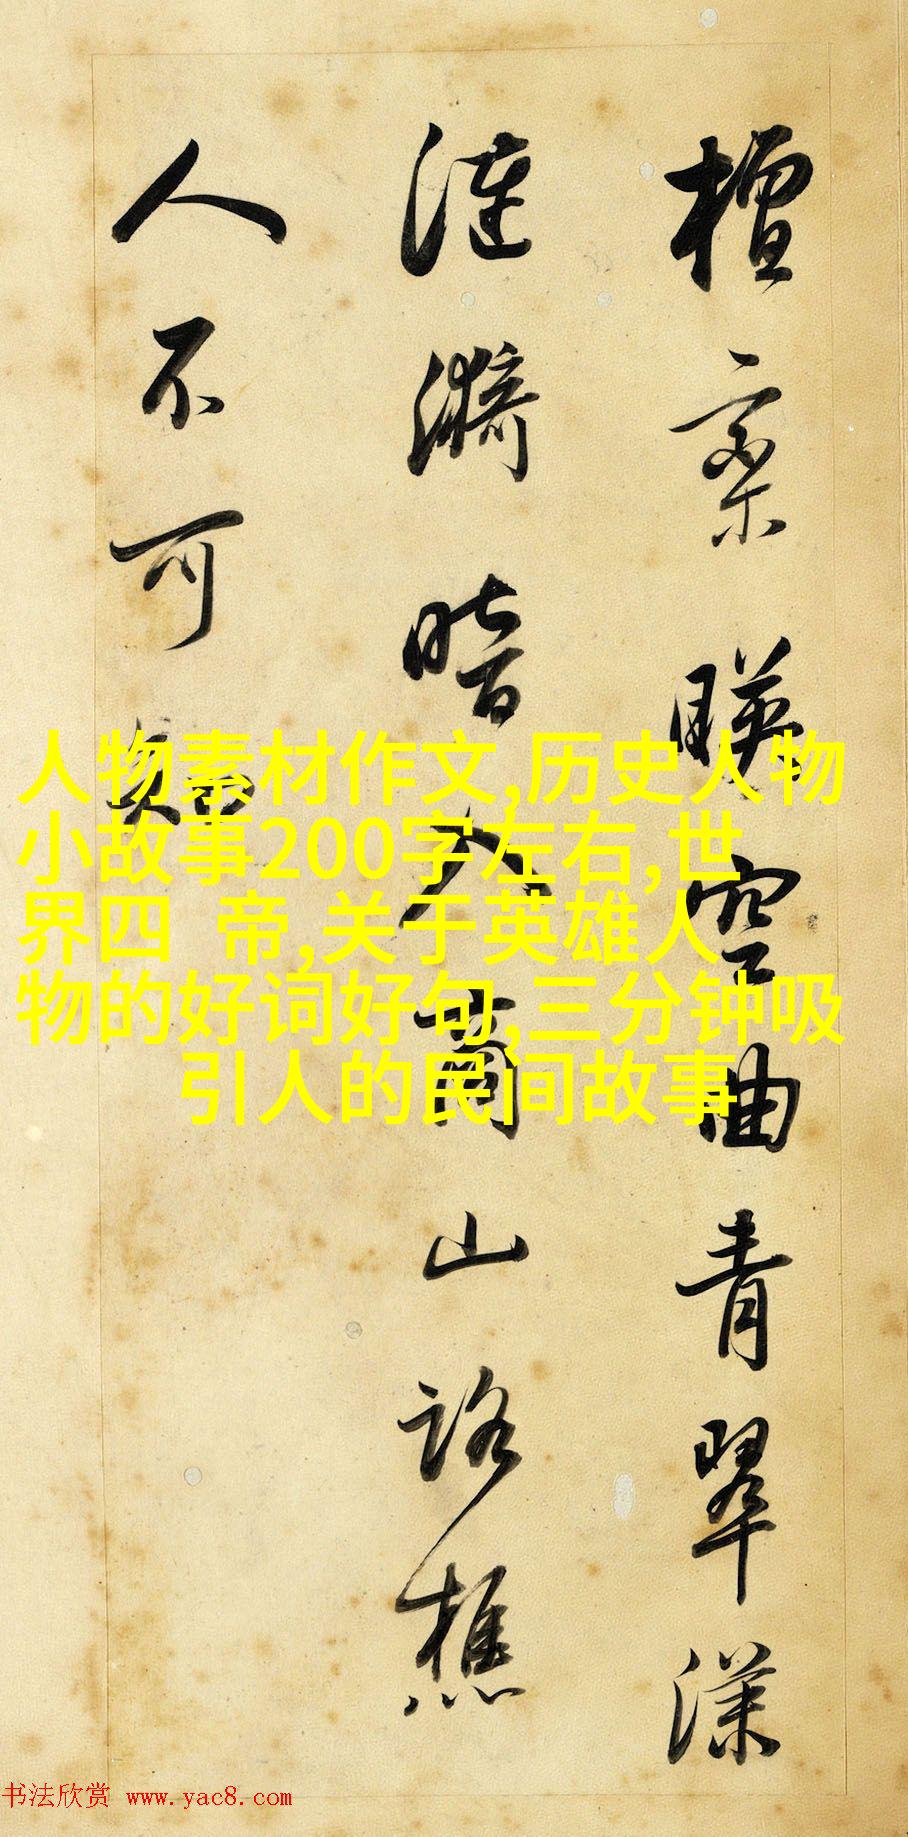 檀栾暎空曲青翠漾
涟漪暗入商山路樵
人不可知
人物素材作文,历史人物
小故事200字左右,世
界四 帝,关于英雄人
物的好词好句,三分钟吸
引人的民间故事
书法欣赏 www.yac8.com